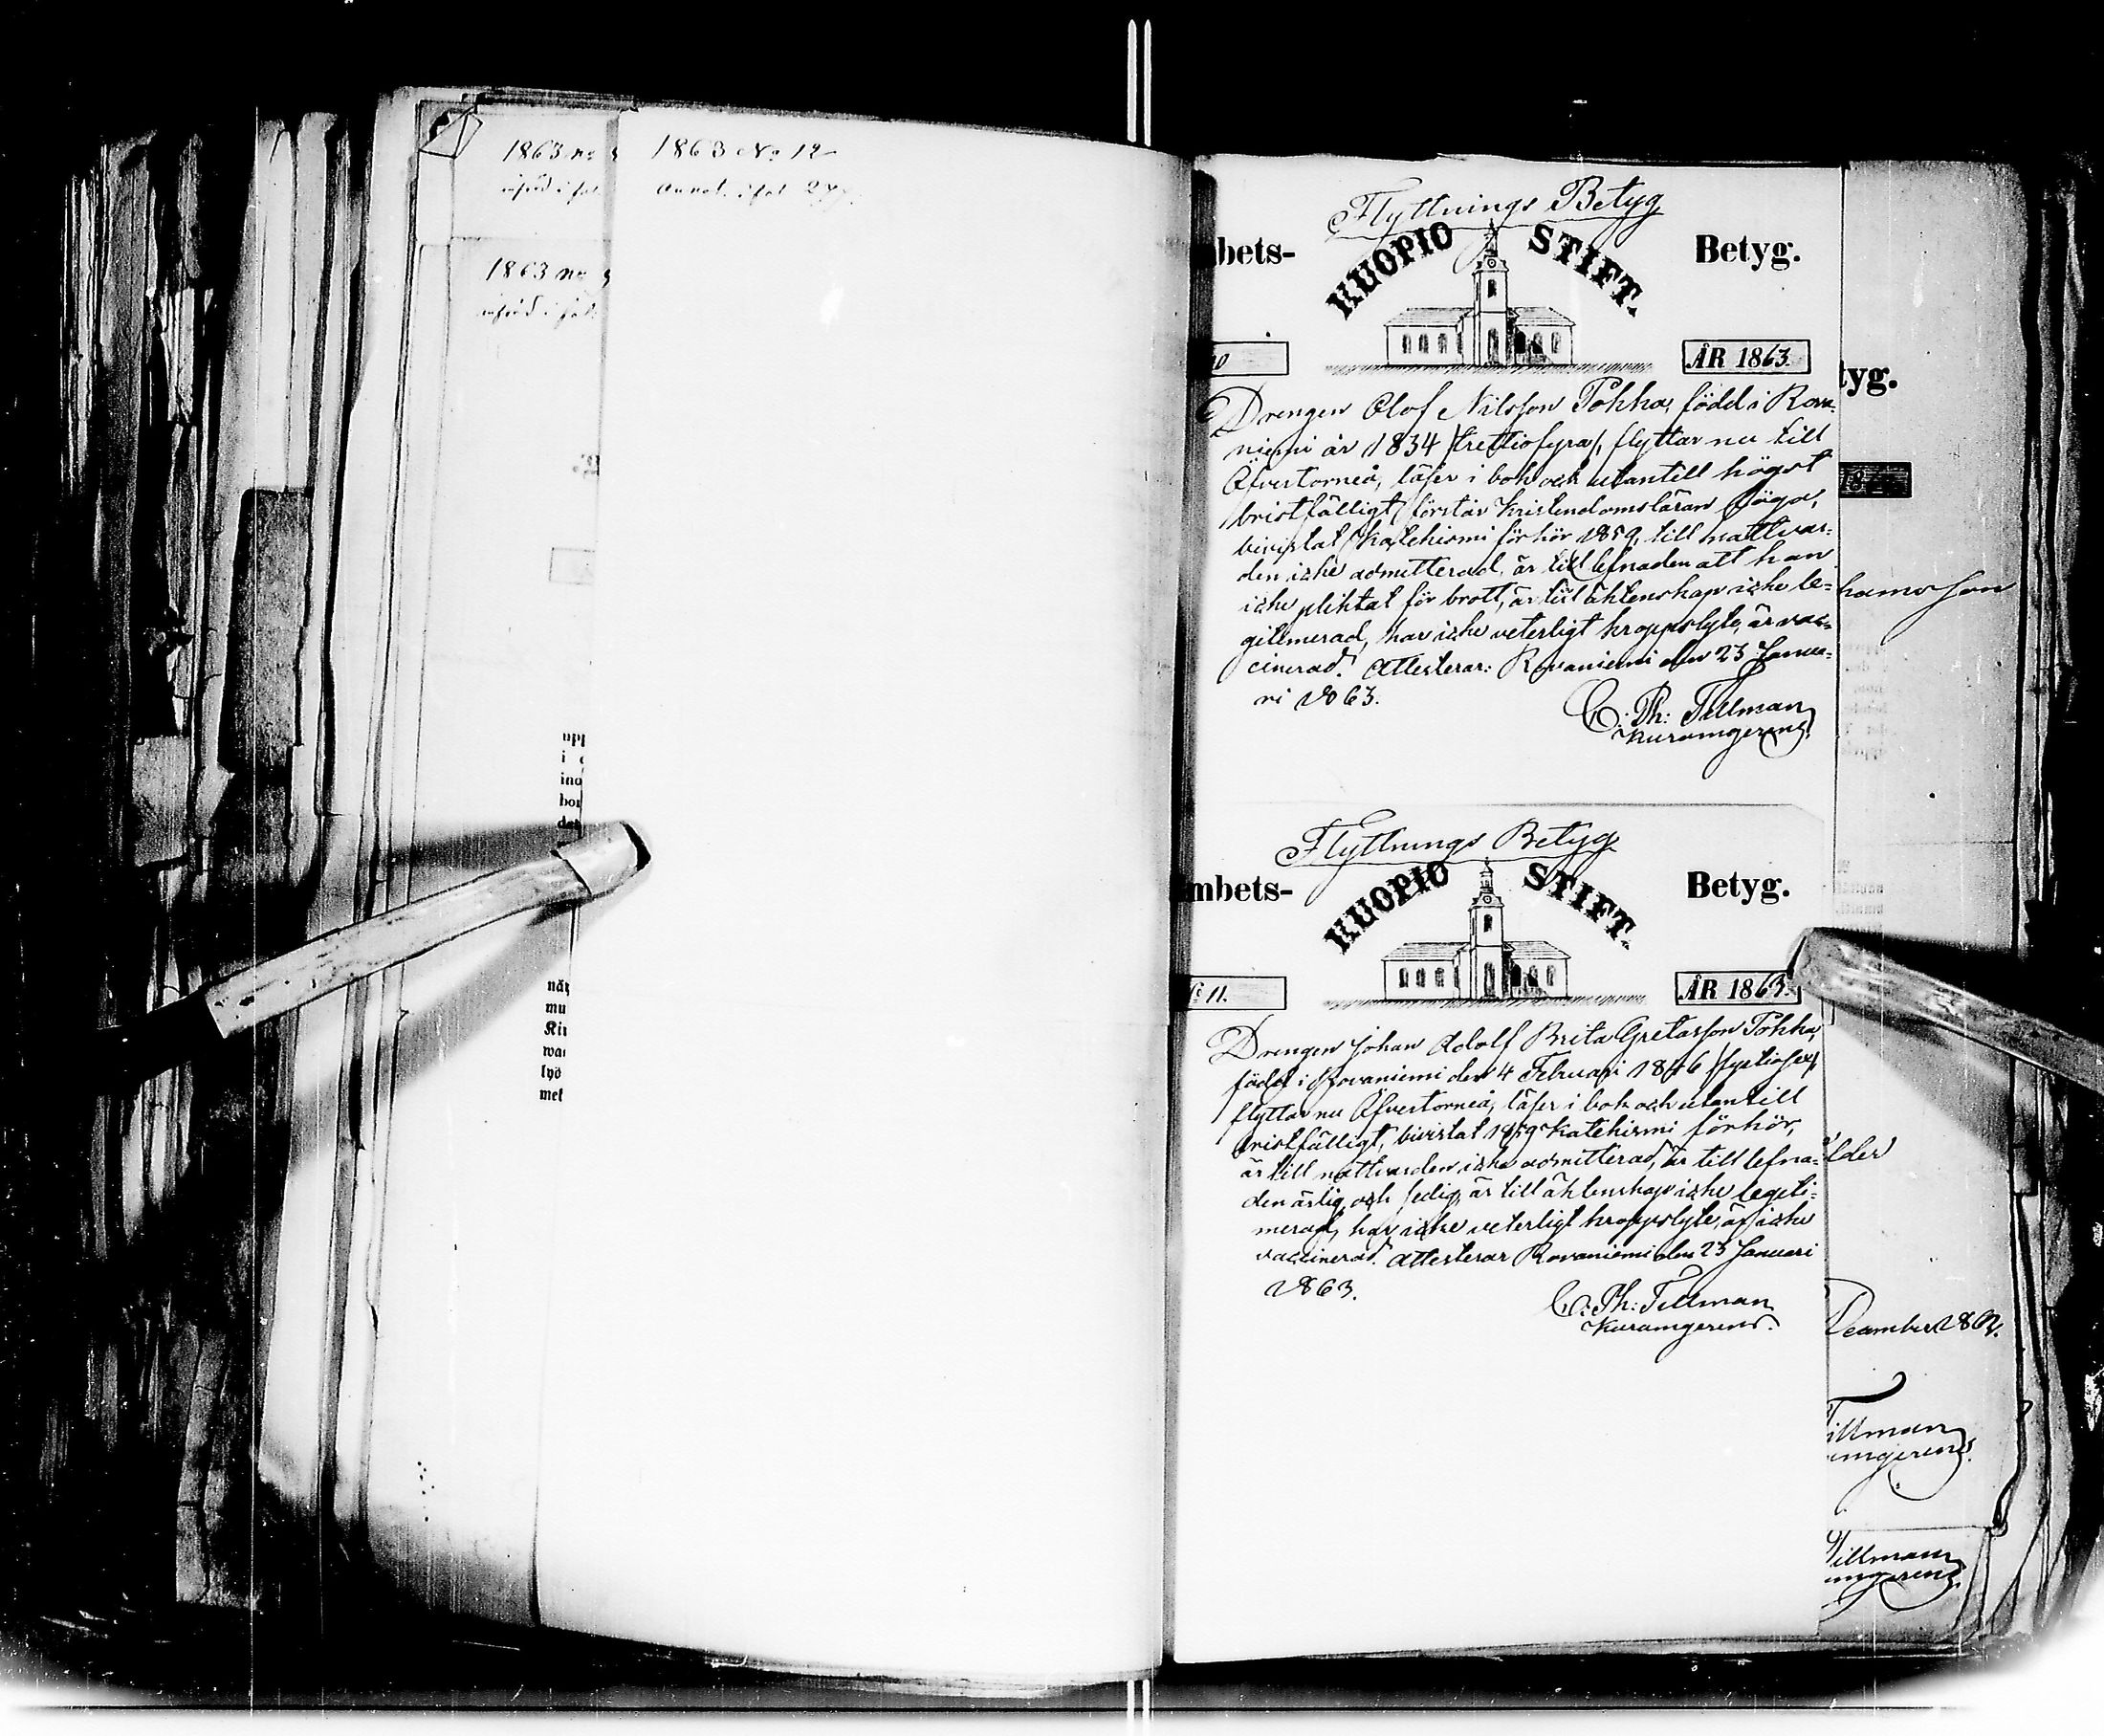 1863 No
införd i fol.
1863 No
införd i fol.
upp
i
ino
bor
det
när
mu
Kir
wa
lyö
met
1863 No 12
Annot. i fol 277.
Flyttnings Betyg
mbets- KUOPIO STIFT. Betyg.
10 ÅR 1863.
Drengen Olof Nilsson Tokka, född i Rova-
niemi år 1834 /trettiofyra/, flyttar nu till
Öfvertorneå, läser i bok och utantill högst
bristfälligt, förstår kristendomsläran föga,
bivistat katekismi förhör 1859, till nattvar-
den icke admitterad, är till lefnaden att han
icke pliktat för brott, är till äktenskap icke le-
gitimerad, har icke veterligt kroppslyte, är vac-
cinerad. Attesterar: Rovaniemi den 23 Janua-
ri 1863.
C. Ph: Tillman
Kuramgerens.
Flyttnings Betyg
mbets- KUOPIO STIFT. Betyg.
No 11. ÅR 1863.
Drengen Johan Adolf Brita Gretasson Tokka,
född i Rovaniemi den 4 Februari 1846 /fyrtiosex/
flyttar nu Öfvertorneå, läser i bok och utantill
bristfälligt, bivistat 1859 katekismi förhör,
är till nattvarden icke admitterad, är till lefna-
den ärlig och sedig, är till äktenskap icke legiti-
merad, har icke veterligt kroppslyte, är icke
vaccinerad. Attesterar Rovaniemi den 23 Januari
1863.
C. Ph: Tillman
Kuramgerens.
tyg.
18
hansson
ålder
December 1862.
Tillman
amgerens.
Tillman
amgerens.